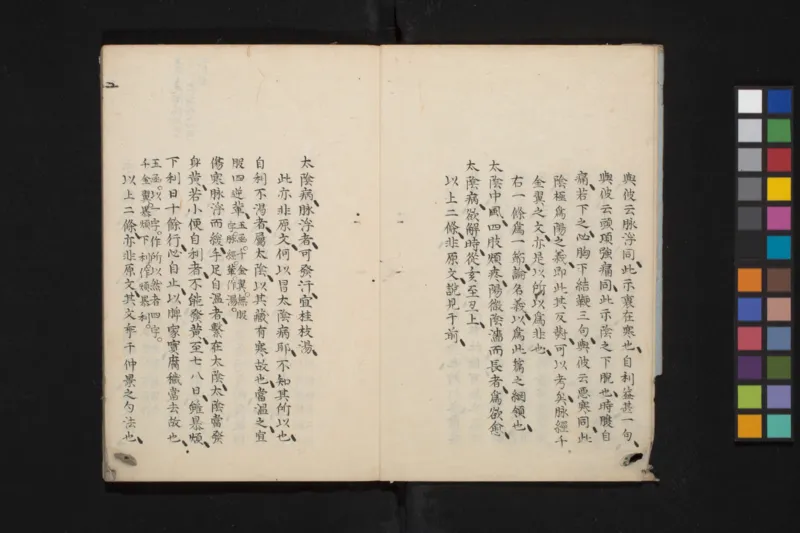 與彼云脉浮同此示裏在寒也自利益甚一句
與彼云頭項強痛同此示陰之下脫也時腹自
痛若下之必胸下結鞕三句與彼云惡寒同此
陰極爲陽之義即此其反對可以考矣脉經千
金翼之文亦是以所以爲非也
右一條爲一節論名義以爲此篇之綱領也
太陰中風四肢煩疼陽微陰濇而長者爲欲愈
太陰病欲解時從亥至丑上
以上二條非原文說見于前
太陰病脉浮者可發汗宜桂枝湯
此亦非原文何以冒太陰病耶不知其所以也
自利不渴者屬太陰以其藏有寒故也當溫之宜
服四逆輩玉函千金翼無服字脉經輩作湯
傷寒脉浮而緩手足自溫者繫在太陰太陰當發
身黃若小便自利者不能發黃至七八日雖暴煩
下利日十餘行必自止以脾家實腐穢當去故也
玉函以一字作所以然者四字
千金翼暴煩下利作煩暴利
以上二條亦非原文其文有乖仲景之句法也